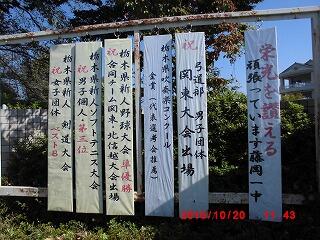 栄光を讃える
頑張っています藤岡一中
祝 弓道部 男子団体
関東大会出場
栃木県吹奏楽コンクール
金賞(代表選考会推薦)
栃木県新人野球大会 準優勝
祝 合同チーム関東・北信越大会出場
栃木県新人ソフトテニス大会
祝 女子個人 第一位
栃木県新人 剣道大会
祝 女子団体 ベスト8
2010/10/20 11:43